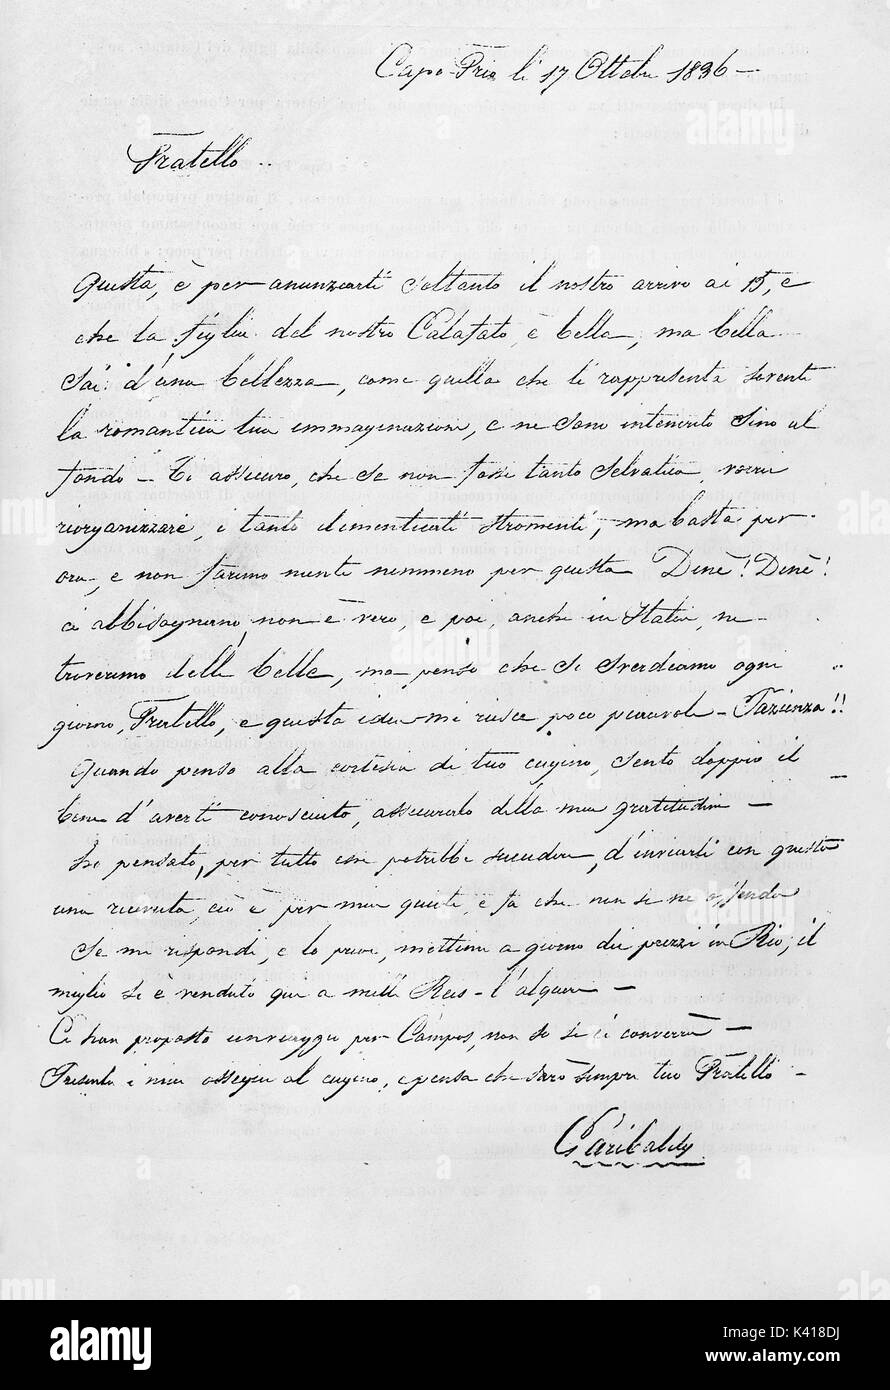 Capo-Frio li 17 Ottobre 1836 —
Fratello ..
Questa, è per anunziarti soltanto il nostro arrivo ai 15, e
che la figlia del nostro Calafato, è bella, ma bella
sai d'una bellezza, come quella che ti rappresenta sovente
la romantica tua immaginazione, e ne sono intenerito sino al
fondo — Ti assicuro, che se non fosse tanto selvatica, vorrei
riorganizzare, i tanto dimenticati stromenti, ma basta per
ora, e non faremo niente nemmeno per questa Dené! Dené!
ci abbisognano, non è vero, e poi, anche in Italia, ne
troveremo delle belle, ma, penso che si sverdeamo ogni
giorno, Fratello, e questa idea mi riesce poco piacevole — Pazienza!!
Quando penso alla cortesia di tuo cugino, sento doppio il
bene d'averti conosciuto, assicuralo della mia gratitudine —
ho pensato, per tutto che potrebbe succedere, d'inviarti con questa
una ricevuta, ciò è per mia quiete, e fa che non se ne offenda
Se mi rispondi, e lo puoi, mettimi a giorno dei prezzi in Rio, il
miglio si è venduto qui a mille Reis — l'alquere —
Ci han proposto un viaggio per Campos, non so se ci converrà —
Presenta i miei ossequi al cugino, e pensa che sarò sempre tuo Fratello —
Garibaldi
alamy
alamy stock photo
K418DJ
www.alamy.com